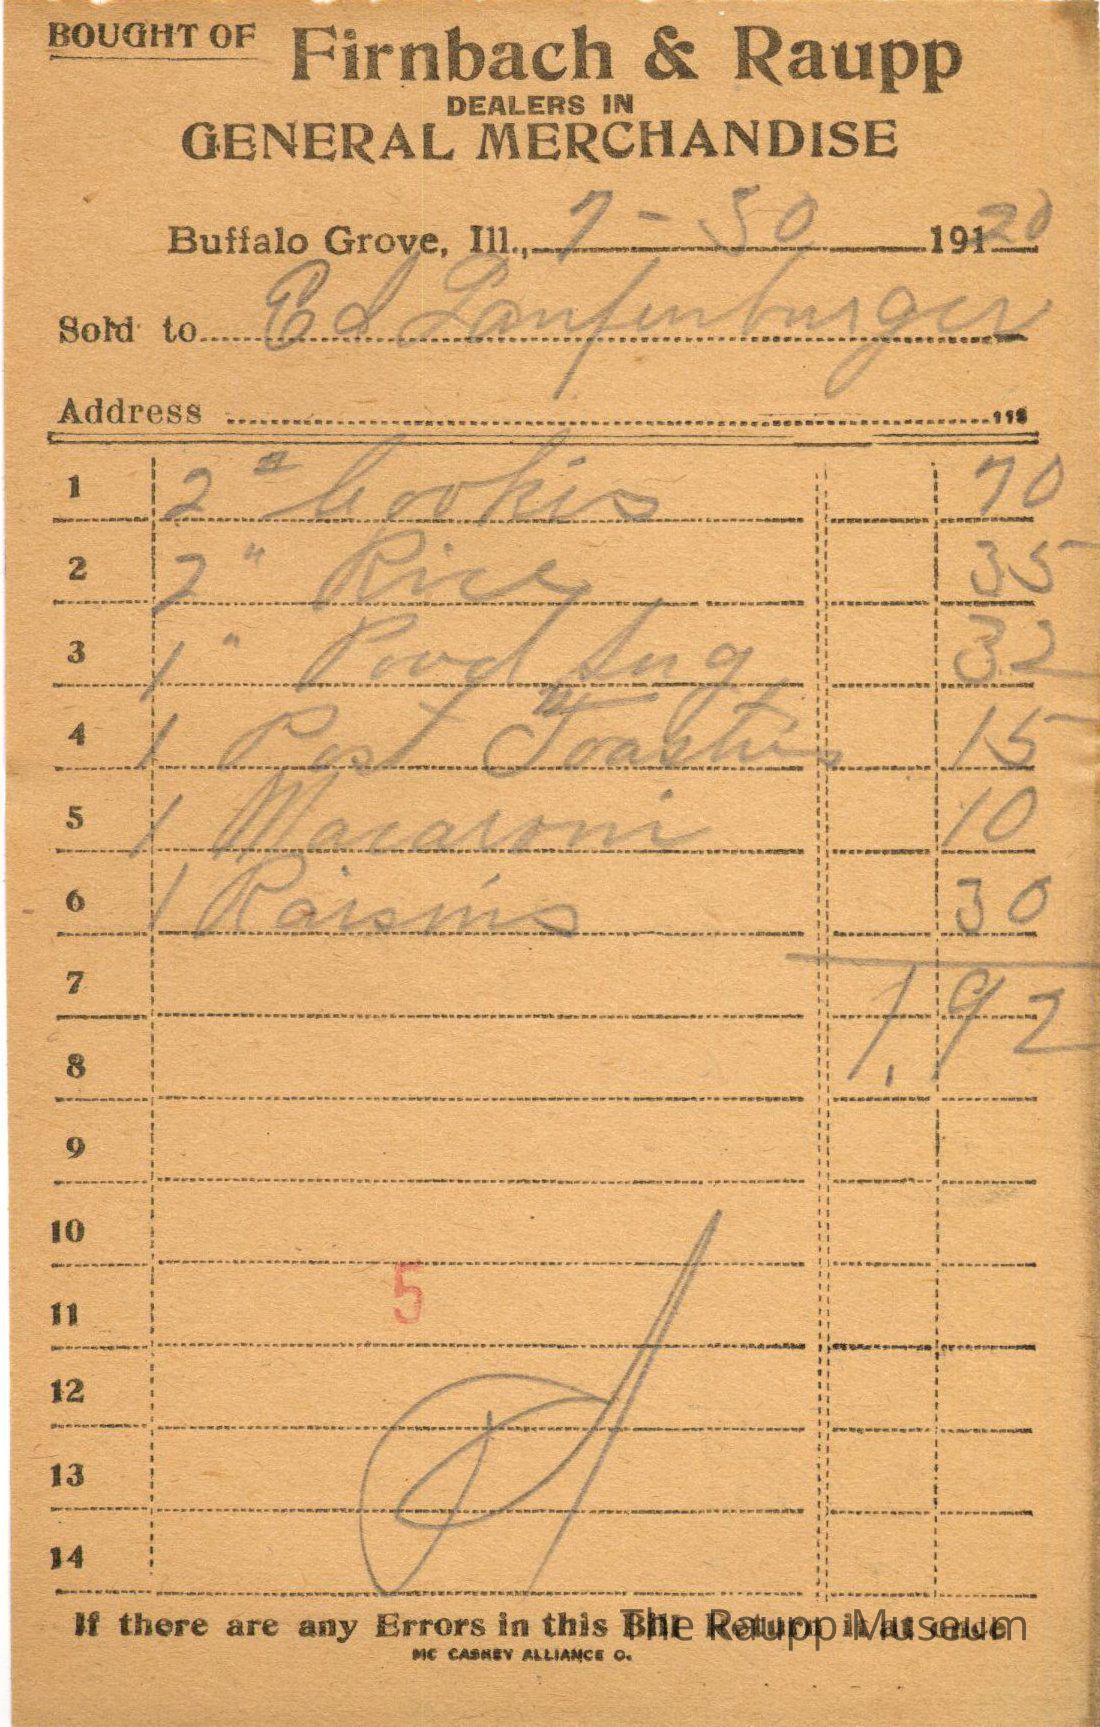 BOUGHT OF Firnbach & Raupp
DEALERS IN
GENERAL MERCHANDISE
Buffalo Grove, Ill., 7-30 191 20
Sold to Ed Laufenburger
Address 
1 2 # Cookis 70
2 2 " Rice 35
3 1 " Powd Sug 32
4 1 Post Toasties 15
5 1 Macaroni 10
6 1 Raisins 30
7 1,92
8
9
10
11 5
12
13
14
If there are any Errors in this Bill Return it at once
The Raupp Museum
MC CASKEY ALLIANCE O.